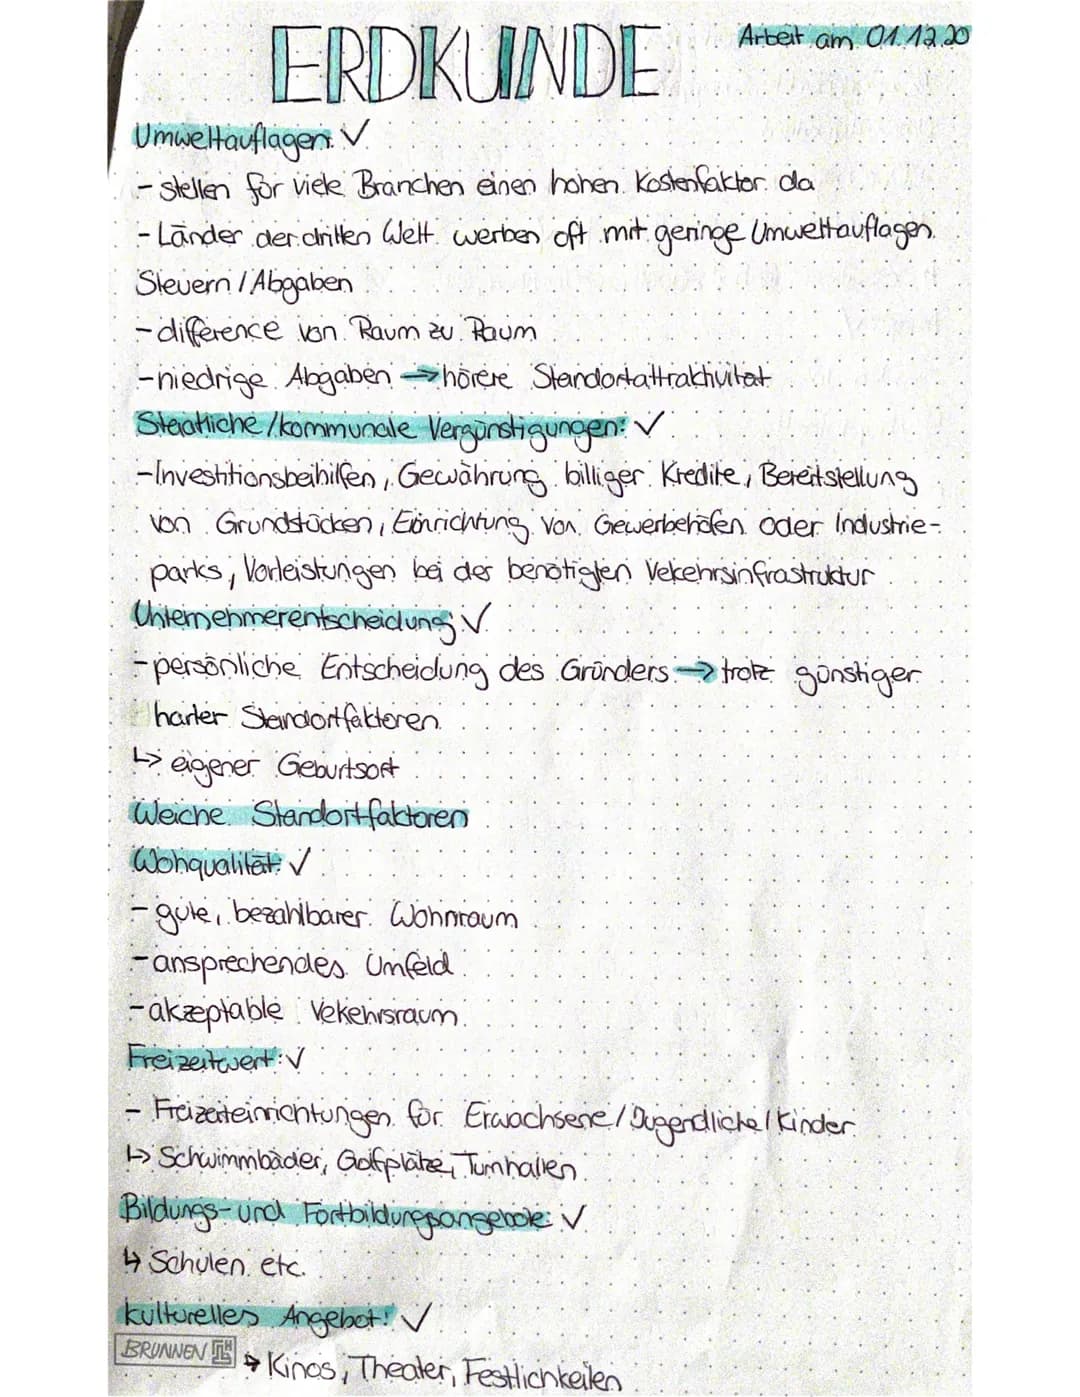 ERDKUNDE
Arbeit am 01.12.20
Umweltauflagen: ✓
- stellen für viele Branchen einen hohen Kostenfaktor da
- Länder der dritten Welt werben oft mit geringe Umweltauflagen
Steuern / Abgaben
- différence von Raum zu Raum
- niedrige Abgaben → hörere Standortattraktivität
Staatliche / kommunale Vergünstigungen: ✓
- Investitionsbeihilfen, Gewährung billiger Kredite, Bereitstellung
von Grundstücken, Einrichtung von Gewerbehöfen oder Industrie-
parks, Vorleistungen bei der benötigten Vekehrsinfrastruktur
Unternehmerentscheidung ✓
- persönliche Entscheidung des Gründers → trotz günstiger
harter Standortfaktoren
↳ eigener Geburtsort
Weiche Standortfaktoren
Wohqualität: ✓
- gute, bezahlbarer Wohnraum
- ansprechendes Umfeld
- akzeptable Vekehrsraum
Freizeitwert: ✓
- Freizeiteinrichtungen für Erwachsene / Jugendliche / Kinder
↳ Schwimmbäder, Golfplätze, Turnhallen
Bildungs- und Fortbildungsangebote: ✓
↳ Schulen etc.
kulturelles Angebot: ✓
BRUNNEN
↳ Kinos, Theater, Festlichkeiten